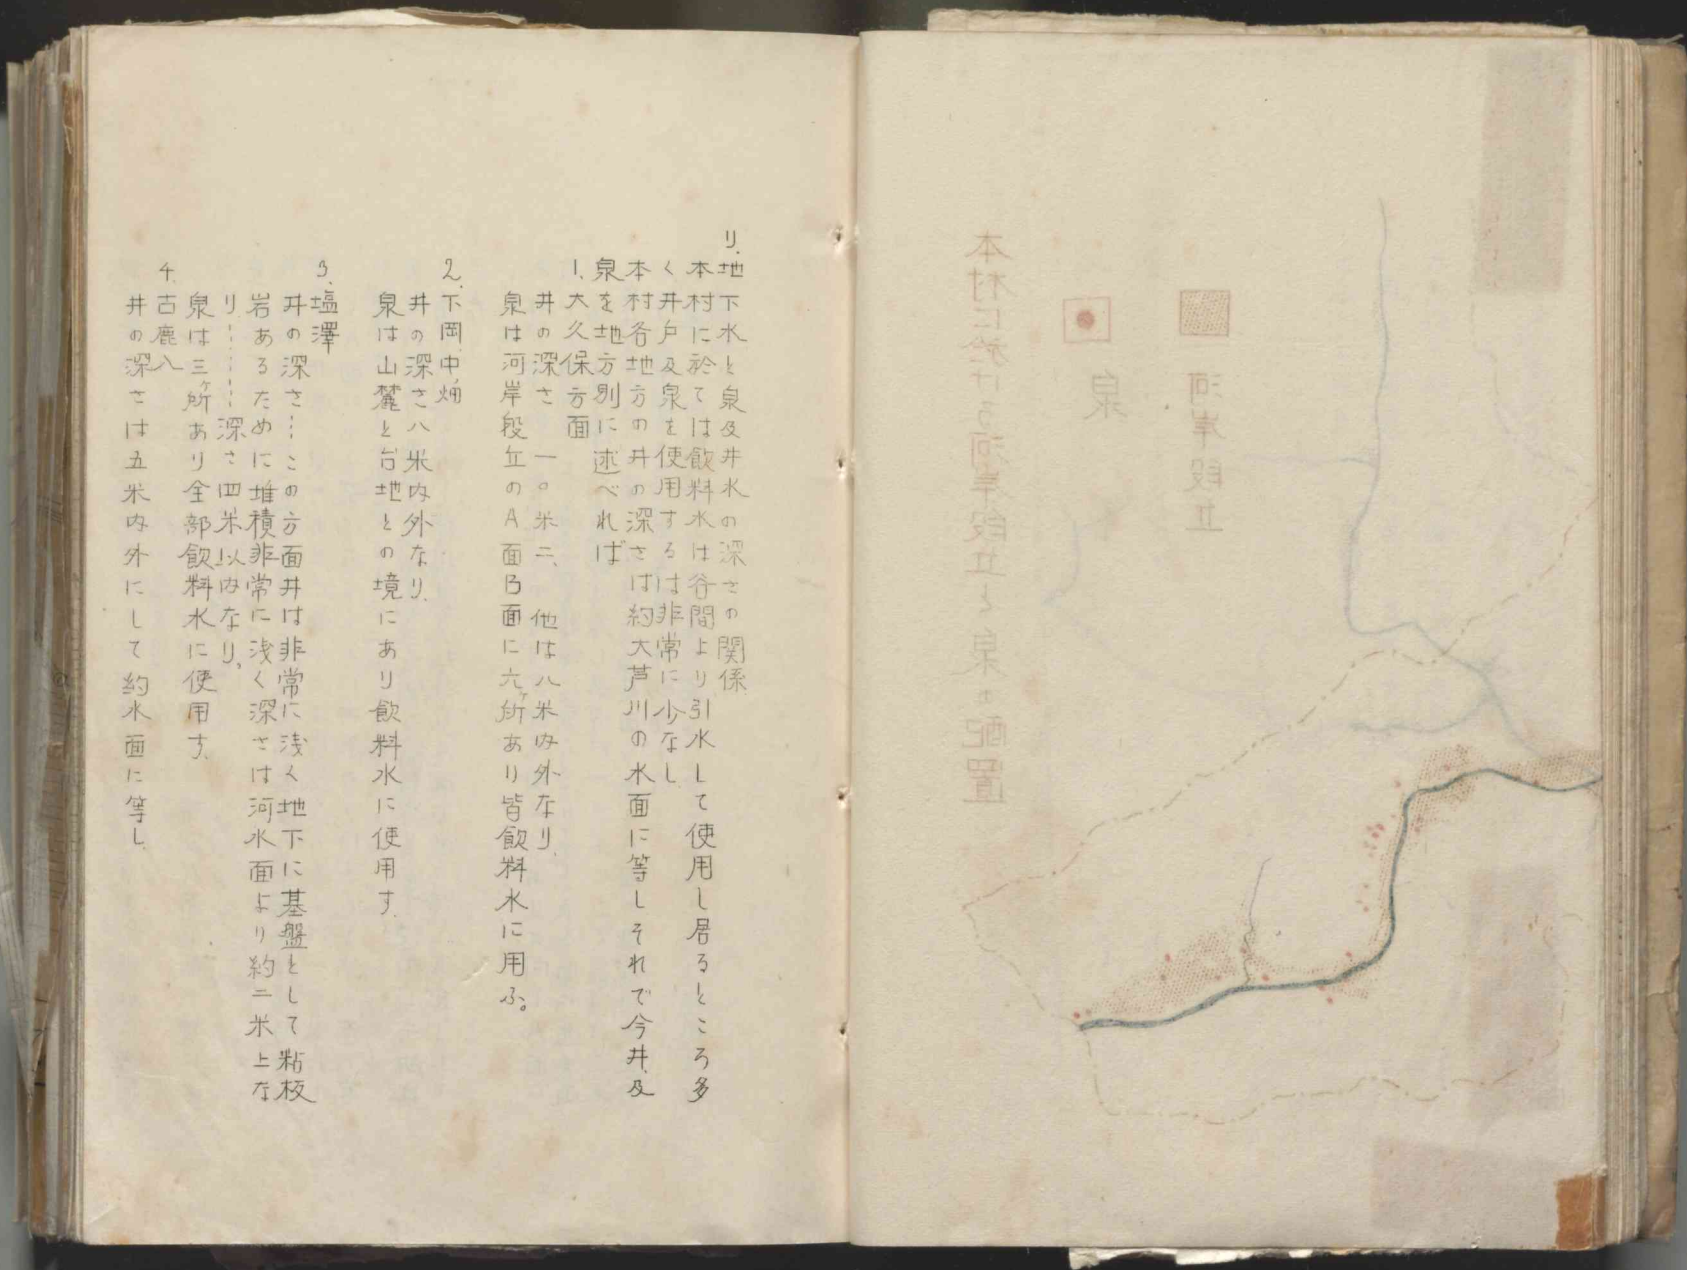 本村に於ける河岸段丘と泉の配置
泉
河岸段丘
リ.地下水と泉及井水の深さの関係
本村に於ては飲料水は谷間より引水して使用し居るところ多
く井戸及泉を使用するは非常に少なし
本村各地方の井の深さは約大芦川の水面に等しそれで今井及
泉を地方別に述べれば
1、大久保方面
井の深さ 一〇米二、他は八米内外なり、
泉は河岸段丘のA面B面に六ヶ所あり皆飲料水に用ふ。
2、下岡、中畑
井の深さ八米内外なり、
泉は山麓と台地との境にあり飲料水に使用す、
3、塩澤
井の深さ…この方面井は非常に浅く地下に基盤として粘板
岩あるために堆積非常に浅く深さは河水面より約二米上な
り……深さ四米以内なり、
泉は三ヶ所あり全部飲料水に使用す、
4、古鹿入
井の深さは五米内外にして約水面に等し、